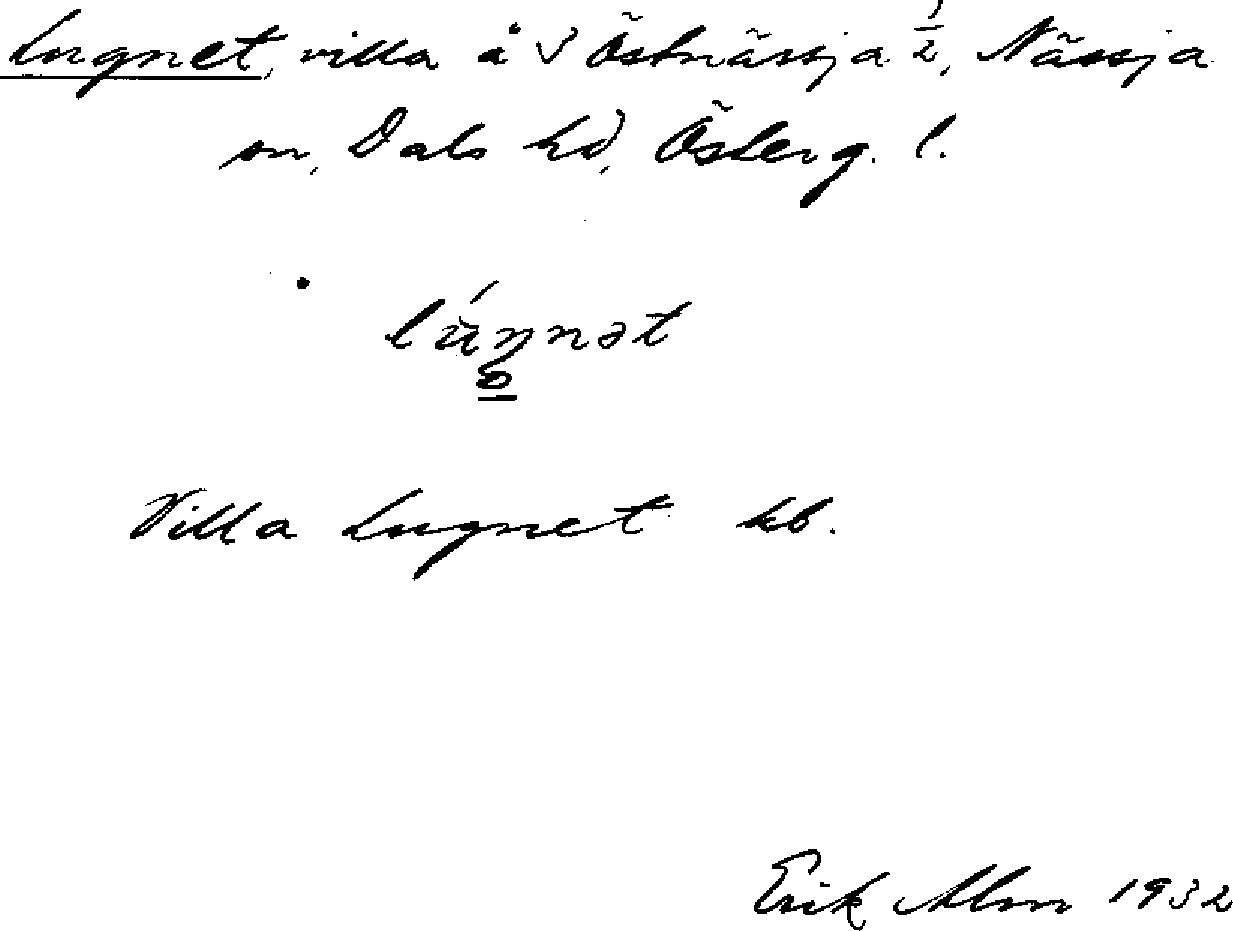 Lugnet, villa å V Östnässja 1/2, Nässja
sn, Dals hd, Österg. l.
lúŋnət
Villa Lugnet kb.
Erik Alm 1932